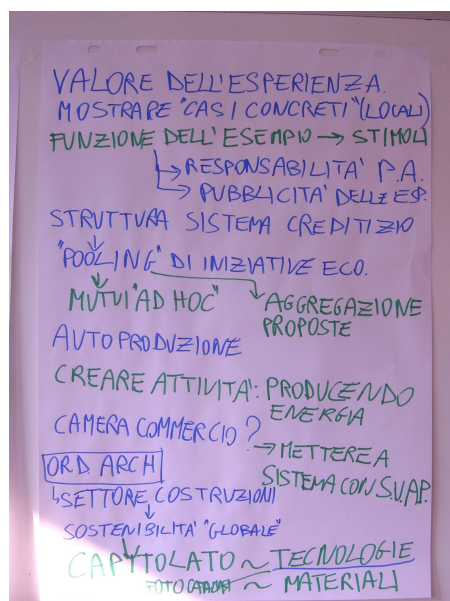 VALORE DELL'ESPERIENZA.
MOSTRARE "CASI CONCRETI" (LOCALI)
FUNZIONE DELL'ESEMPIO → STIMOLI
→ RESPONSABILITA' P.A.
→ PUBBLICITA' DELLE ESP.
STRUTTURA SISTEMA CREDITIZIO
"POOLING" DI INIZIATIVE ECO.
MUTUI "AD HOC"
AGGREGAZIONE
PROPOSTE
AUTOPRODUZIONE
CREARE ATTIVITA': PRODUCENDO
ENERGIA
CAMERA COMMERCIO?
→ METTERE A
SISTEMA CON S.U.AP.
ORD. ARCH
↳ SETTORE COSTRUZIONI
SOSTENIBILITA' "GLOBALE"
CAPITOLATO ~ TECNOLOGIE
~ MATERIALI